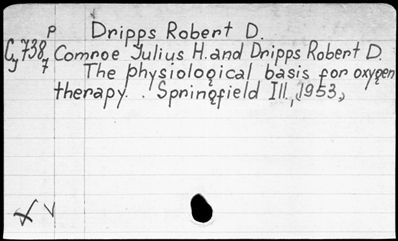 Dripps Robert D.
P
Cy738 Comroe Julius H. and Dripps Robert D.
7 The physiological basis for oxygen
therapy. . Springfield Ill., 1953,
V